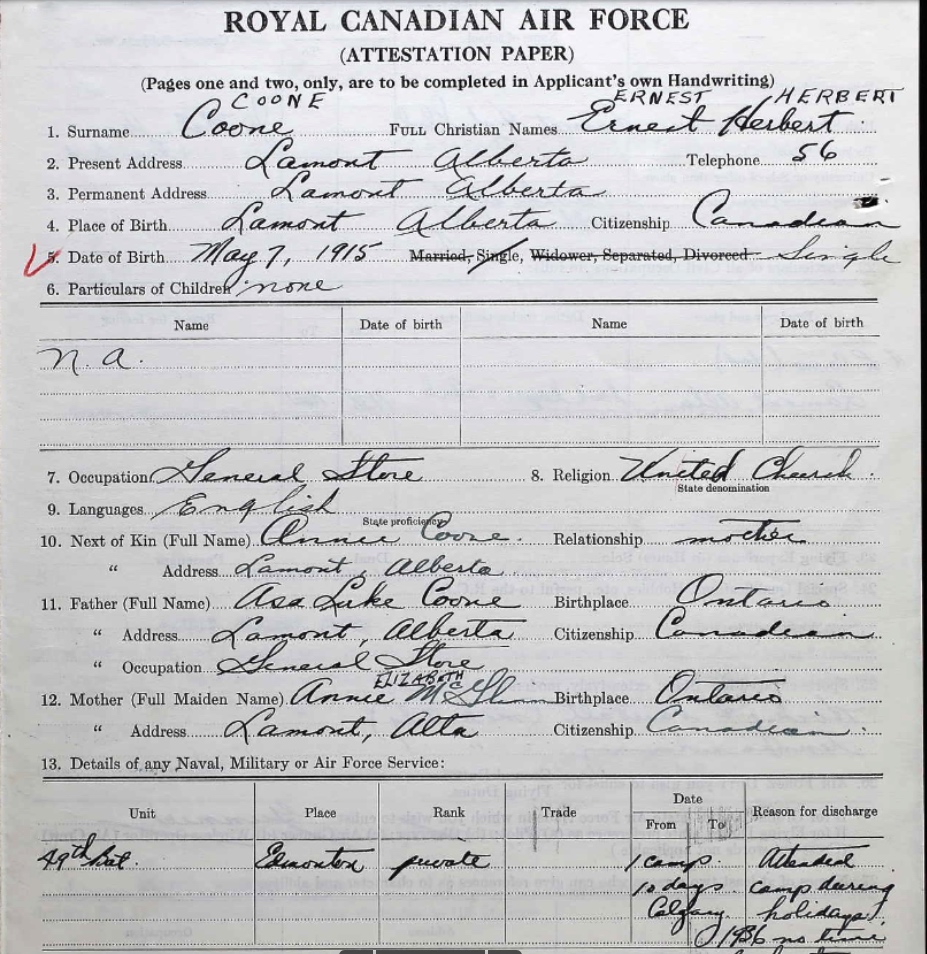 ROYAL CANADIAN AIR FORCE
(ATTESTATION PAPER)
(Pages one and two, only, are to be completed in Applicant's own Handwriting)
COONE ERNEST HERBERT
1. Surname Coone FULL Christian Names Ernest Herbert
2. Present Address Lamont Alberta Telephone 56
3. Permanent Address Lamont Alberta
4. Place of Birth Lamont Alberta Citizenship Canadian
5. Date of Birth May 7, 1915 Married, Single, Widower, Separated, Divorced Single
6. Particulars of Children none
Name Date of birth Name Date of birth
n. a.
7. Occupation General Store 8. Religion United Church
State denomination
9. Languages English
State proficiency
10. Next of Kin (Full Name) Annie Coone. Relationship mother
" Address Lamont, Alberta
11. Father (Full Name) Asa Luke Coone Birthplace Ontario
" Address Lamont, Alberta Citizenship Canadian
" Occupation General Store
ELIZABETH
12. Mother (Full Maiden Name) Annie Birthplace Ontario
" Address Lamont, Alta Citizenship Canadian
13. Details of any Naval, Military or Air Force Service:
Unit Place Rank Trade Date Reason for discharge
From To
49th Bat. Edmonton private 1 camp Attended
10 days camp during
Calgary holidays
1936 no time